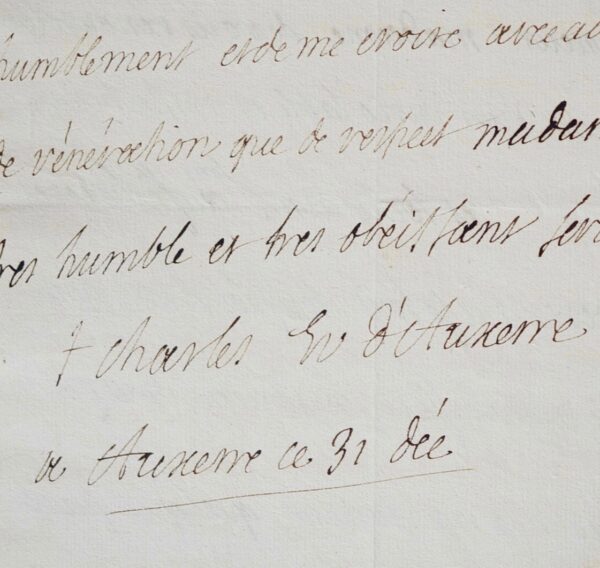 humblement et de me croire avec au
de vénération que de respect madam
tres humble et tres obéissant serv
† Charles Ev d'Auxerre
a Auxerre ce 31 déc